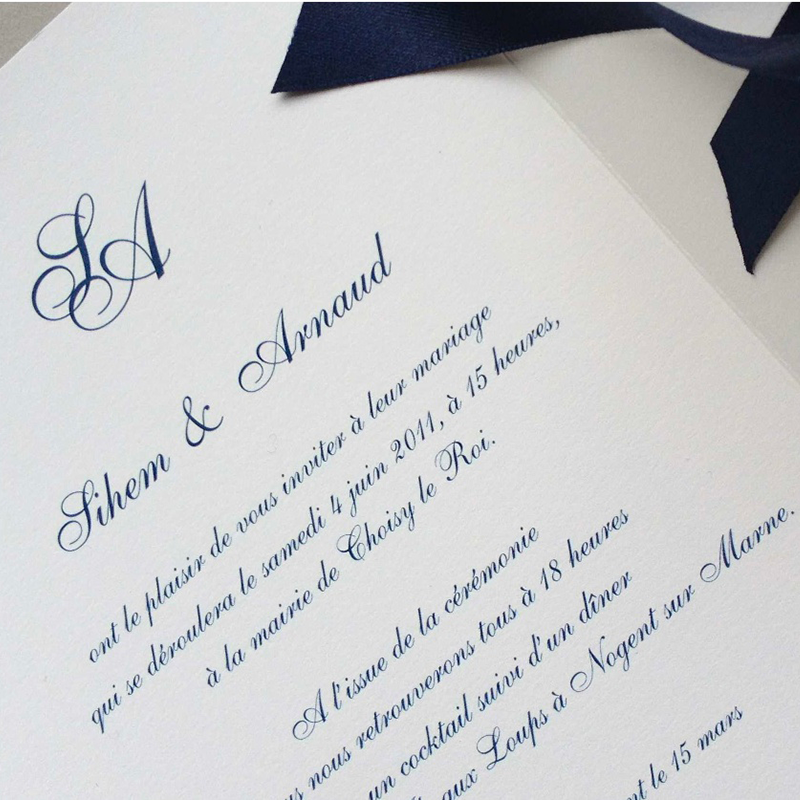 SA
Sihem & Arnaud
ont le plaisir de vous inviter à leur mariage
qui se déroulera le samedi 4 juin 2011, à 15 heures,
à la mairie de Choisy le Roi.
A l'issue de la cérémonie
nous retrouverons tous à 18 heures
un cocktail suivi d'un dîner
aux Loups à Nogent sur Marne.
le 15 mars